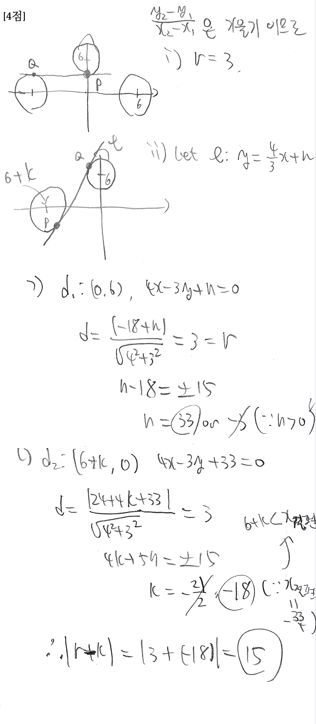 [4점]
y₂-y₁ / x₂-x₁ 은 기울기 이므로
i) r=3.
6
Q
P
1
6
ii) let ℓ: y=4/3x+n
ℓ
Q
6+k
6
P
ㄱ) d₁: (0,6), 4x-3y+n=0
d=|-18+n|/√4²+3² =3=r
n-18=±15
n=33 or 3 (∵n>0)
ㄴ) d₂: (6+k,0) 4x-3y+33=0
d=|24+4k+33|/√4²+3² =3
6+k<x절편
4k+57=±15
k=-21/2, -18 (∵x절편
=
-33/4)
∴|r+k|=|3+(-18)|=15